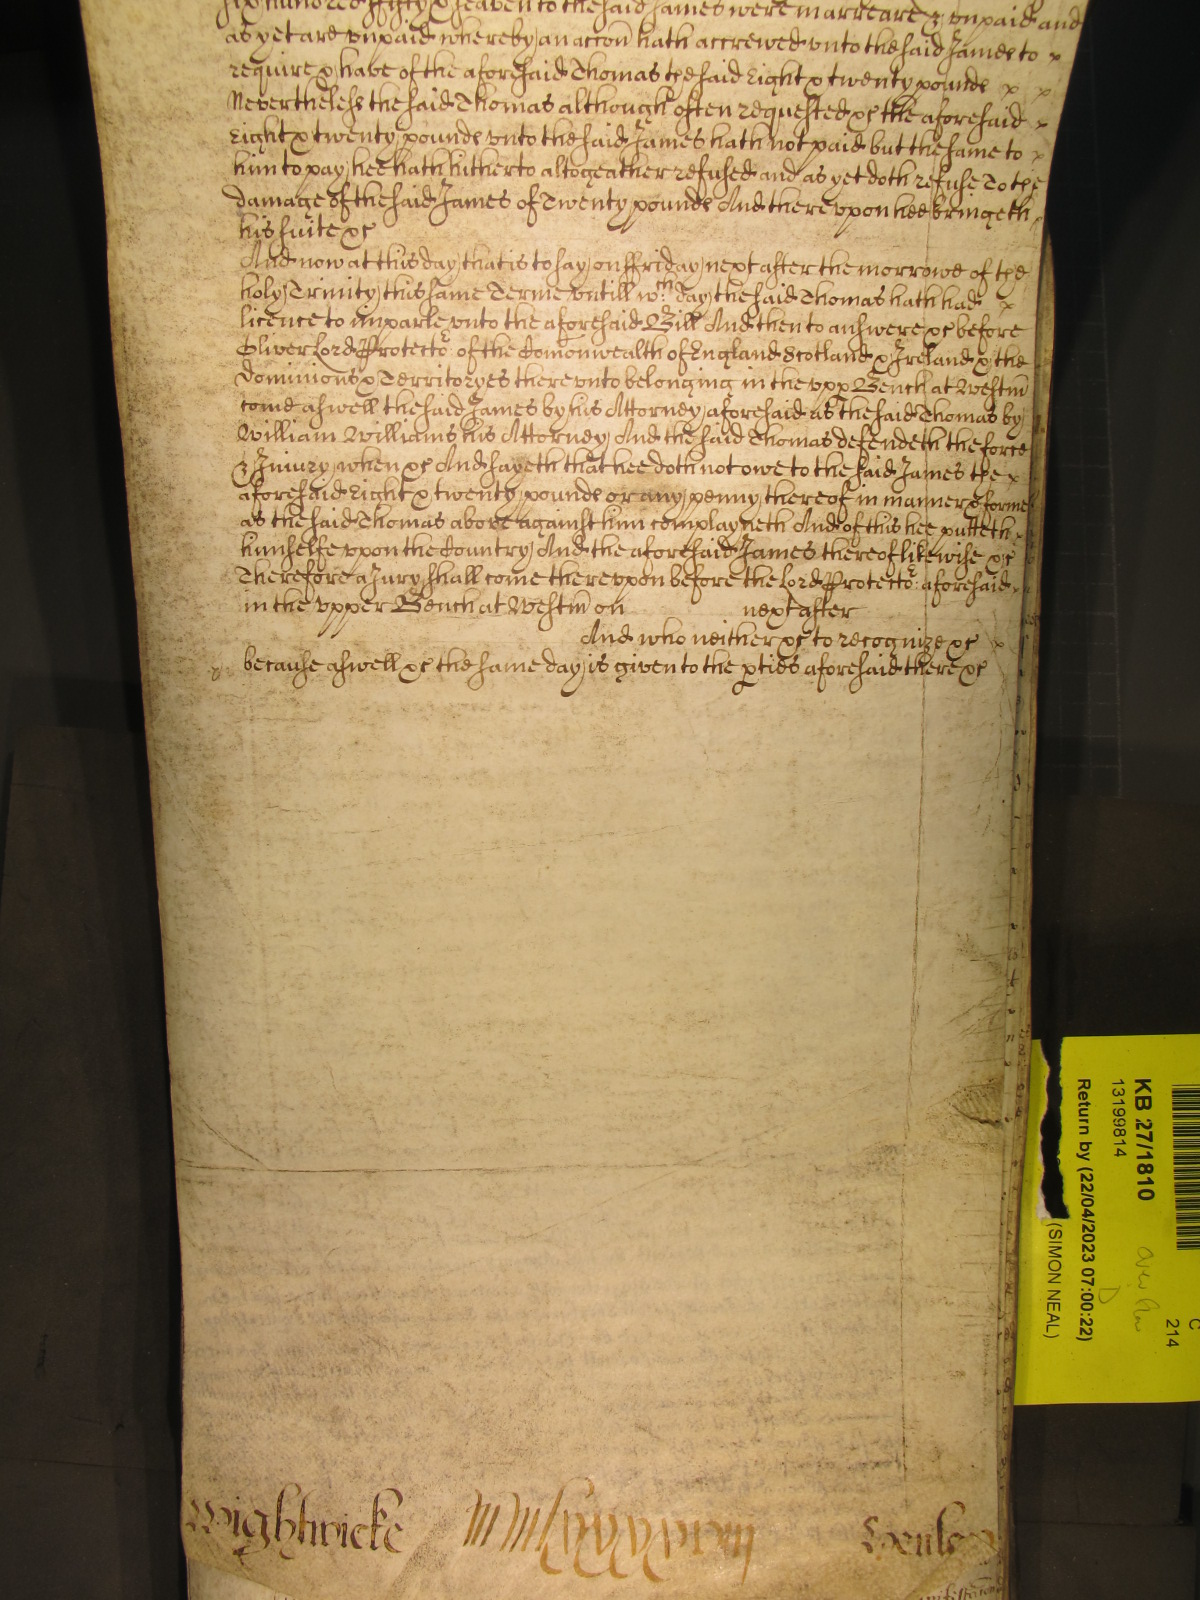 six hundred fifty & seaven to the said James were in arreare & unpaid and
as yet are unpaid whereby an accon hath accrewed unto the said James to
require & have of the aforesaid Thomas the said Eight & twenty pounds
Neverthelesse the said Thomas although often requested &c the aforesaid
Eight & twenty pounds unto the said James hath not paid but the same to
him to pay hee hath hitherto altogeather refused and as yet doth refuse To the
damage of the said James of Twenty pounds And thereupon hee bringeth
his suite &c
And now at this day that is to say on ffriday next after the morrowe of the
holy Trinity this same Terme untill wch day the said Thomas hath had
licence to imparle unto the aforesaid Bill And then to answere &c before
Oliver Lord Protector of the Comonwealth of England Scotland & Ireland & the
Dominions & Territoryes thereunto belonging in the upp Bench at Westm
come aswell the said James by his Attorney aforesaid as the said Thomas by
William Williams his Attorney And the said Thomas defendeth the force
& Injury when &c And sayeth that hee doth not owe to the said James the
aforesaid Eight & twenty pounds or any penny thereof in manner & forme
as the said Thomas above against him complayneth And of this hee putteth
himselfe upon the Country And the aforesaid James thereof likewise &c
Therefore a Jury shall come thereupon before the Lord Protector aforesaid
in the upper Bench at Westm on next after
And who neither &c to recognize &c
because aswell &c the same day is given to the pties aforesaid there &c
Wightwicke
KB 27/1810
13199814
Return by (22/04/2023 07:00:22)
(SIMON NEAL)
C
214